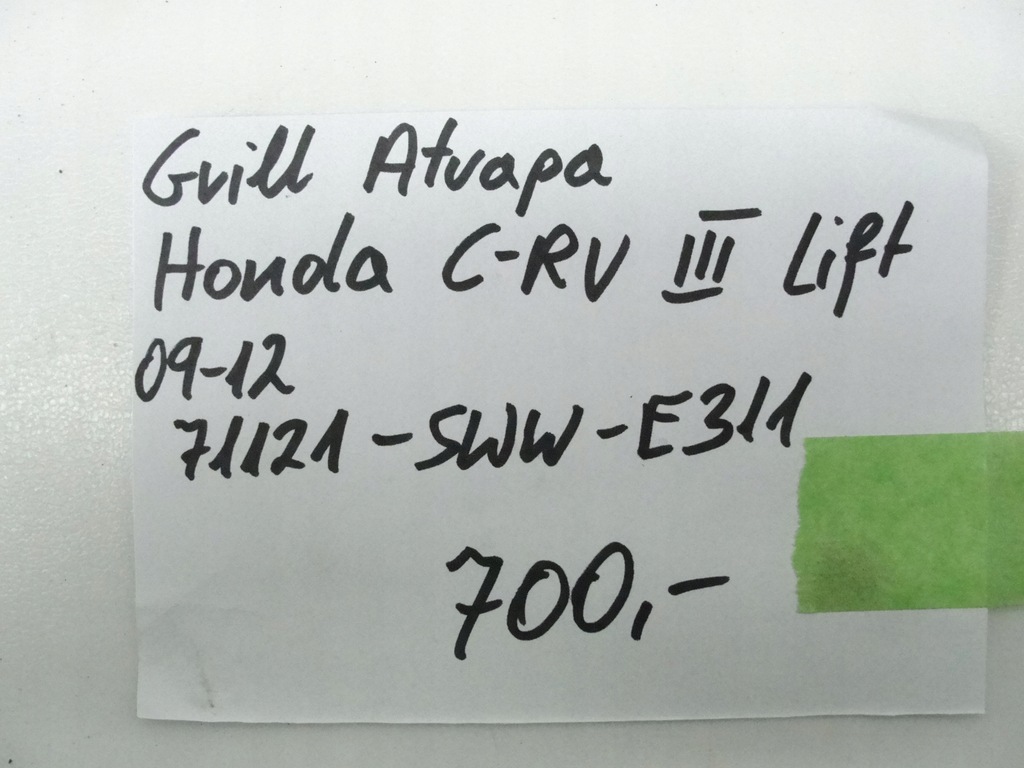 Grill Atrapa
Honda C-RV III Lift
09-12
71121-SWW-E311
700,-